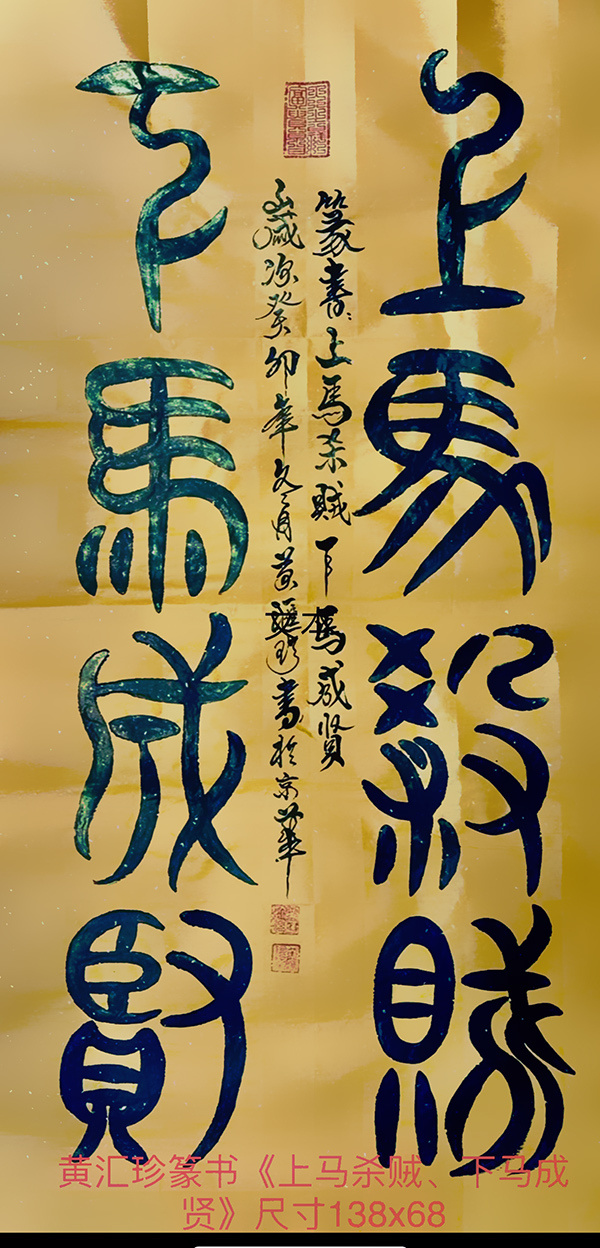 上馬殺賊
篆書：上馬杀贼下馬成贤
歲次癸卯年冬月黄匯珍書於京華
下馬成賢
黄汇珍篆书《上马杀贼、下马成
贤》尺寸138x68